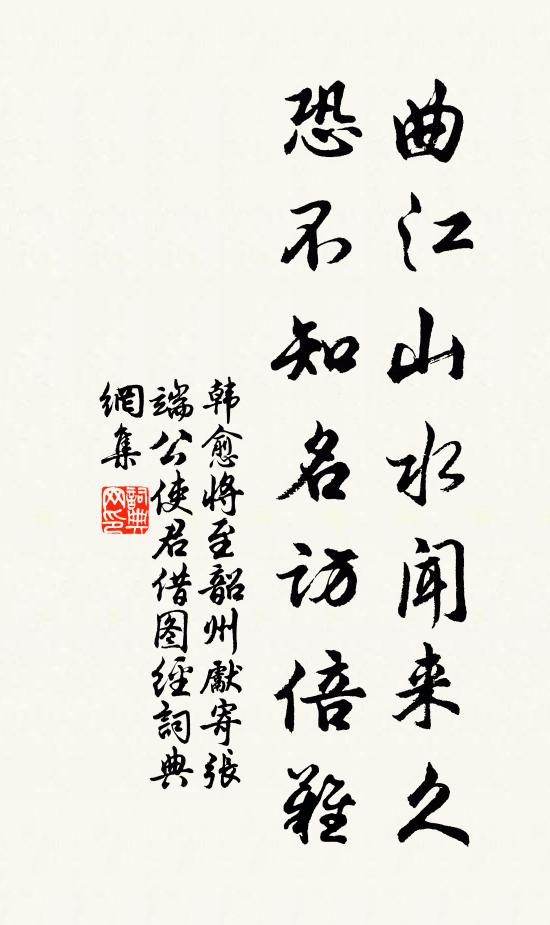 曲江山水闻来久
恐不知名访倍難
韩愈将至韶州獻寄張
端公使君借图經詞典
網集
詞典
网印